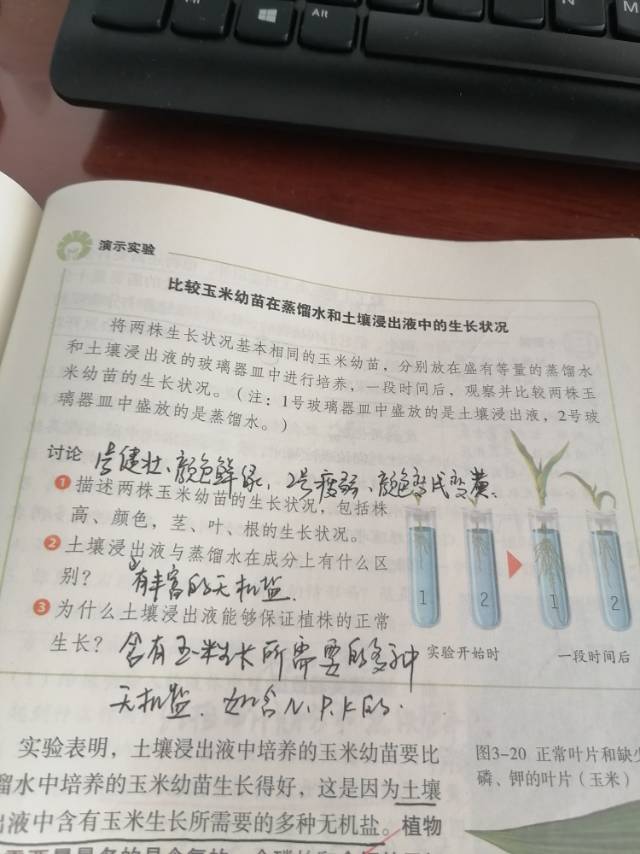 Alt
N
M
演示实验
比较玉米幼苗在蒸馏水和土壤浸出液中的生长状况
将两株生长状况基本相同的玉米幼苗，分别放在盛有等量的蒸馏水
和土壤浸出液的玻璃器皿中进行培养，一段时间后，观察并比较两株玉
米幼苗的生长状况。（注：1号玻璃器皿中盛放的是土壤浸出液，2号玻
璃器皿中盛放的是蒸馏水。）
讨论
1号健壮、颜色鲜绿，2号瘦弱、颜色变浅变黄。
1 描述两株玉米幼苗的生长状况，包括株
高、颜色，茎、叶、根的生长状况。
2 土壤浸出液与蒸馏水在成分上有什么区
别？
有丰富的无机盐.
3 为什么土壤浸出液能够保证植株的正常
生长？
含有玉米生长所需要的多种
无机盐. 如含N.P.K的.
1 2 1 2
实验开始时 一段时间后
实验表明，土壤浸出液中培养的玉米幼苗要比
馏水中培养的玉米幼苗生长得好，这是因为土壤
出液中含有玉米生长所需要的多种无机盐。植物
图3-20 正常叶片和缺少
磷、钾的叶片（玉米）